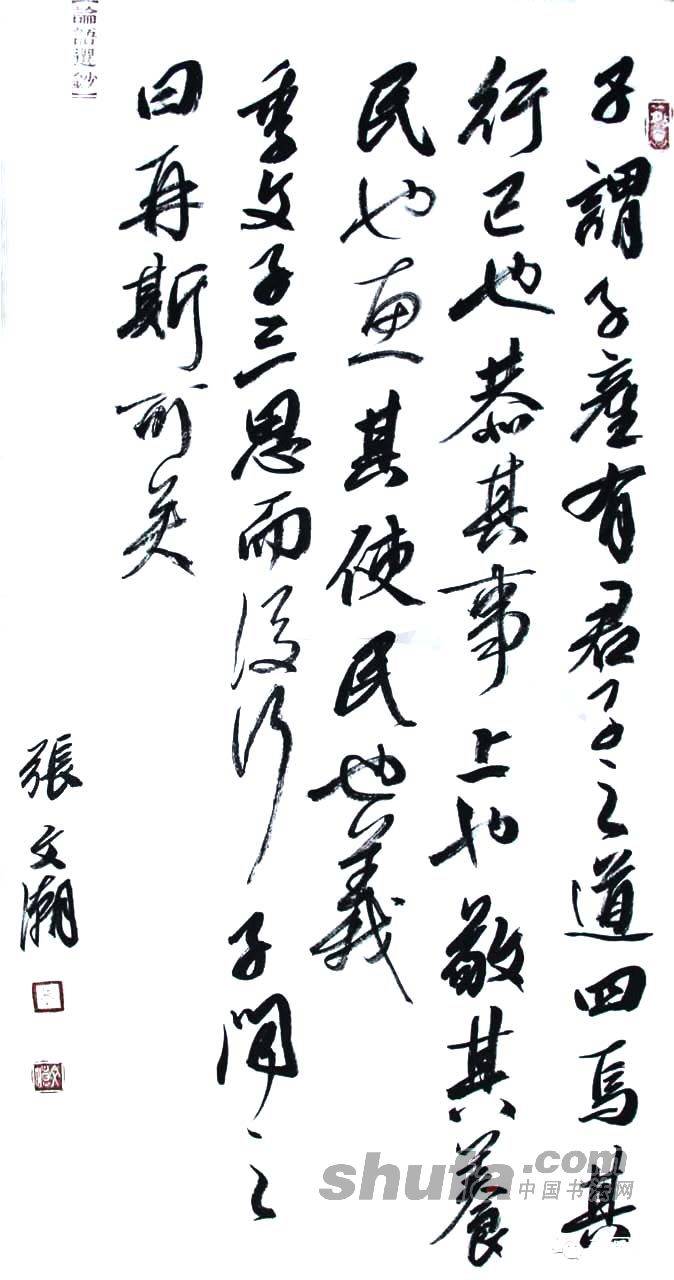 子謂子產有君子之道四焉其
行己也恭其事上也敬其養
民也惠其使民也義
季文子三思而後行子聞之
曰再斯可矣
張文潮
【論語選鈔】
shufa.com
中国书法网